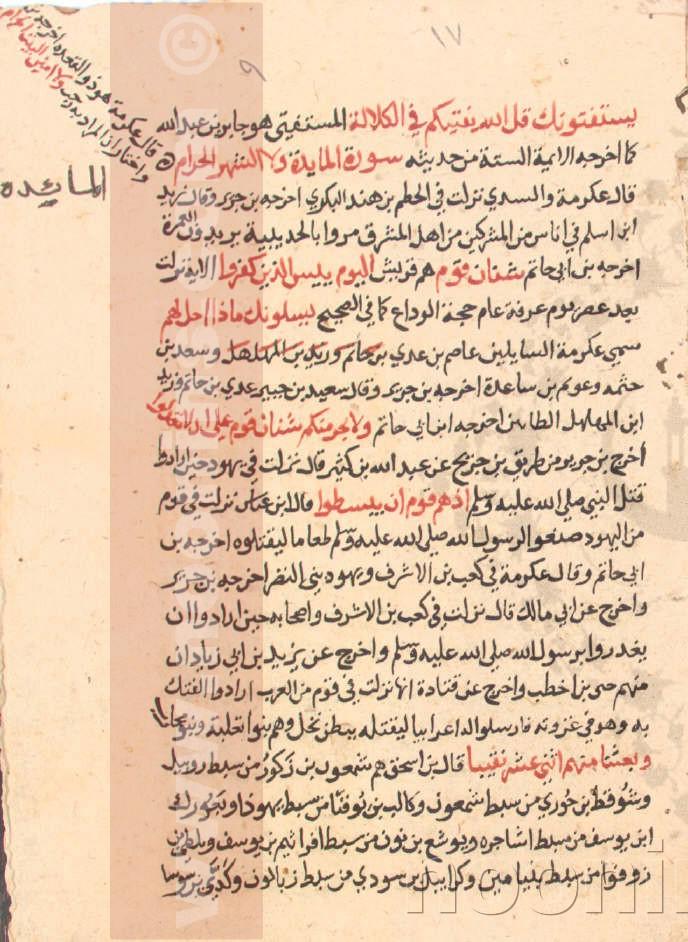 ١٧
٩
قال عكرمة هو ذو القعدة اخرجه بن
واختار ان المراد به رجب ولا امين البيت الحرام
المائده
يستفتونك قل الله يفتيكم في الكلالة المستفتي هو جابر بن عبد الله
كما اخرجه الايمة الستة من حديثه سورة المايدة ولا الشهر الحرام
قال عكرمة والسدي نزلت في الحطم بن هند البكري اخرجه بن جرير وقال زيد
ابن اسلم في اناس من المشركين من اهل المشرق مروا بالحديبية يريدون العمرة
اخرجه بن ابي حاتم شنان قوم هم قريش اليوم ييس الذين كفروا الاية نزلت
بعد عصر يوم عرفة عام حجة الوداع كما في الصحيح يسلونك ماذا احل لهم
سمي عكرمة السايلين عاصم بن عدي بن حاتم وزيد بن المهلهل وسعد بن
خثمه وعويم بن ساعدة اخرجه بن جرير وقال سعيد بن جبير عدي بن حاتم وزيد
ابن المهلهل الطايين اخرجه ابن ابي حاتم ولا يجرمنكم شنان قوم على ان لا تعدلوا
اخرج بن جرير من طريق بن جريج عن عبد الله بن كثير قال نزلت في يهود حين ارادوا
قتل النبي صلى الله عليه وسلم اذ هم قوم ان يبسطوا قال ابن عباس نزلت في قوم
من اليهود صنعوا لرسول الله صلى الله عليه وسلم طعاما ليقتلوه اخرجه بن
ابي حاتم وقال عكرمة في كعب بن الاشرف ويهود بني النضر اخرجه بن جرير
واخرج عن ابي مالك قال نزلت في كعب بن الاشرف واصحابه حين ارادوا ان
يغدروا برسول الله صلى الله عليه وسلم واخرج عن يزيد بن ابي زياد ان
منهم حيى بن اخطب واخرج عن قتادة انها نزلت في قوم من العرب ارادوا الفتك
به وهو في غزوته فارسلوا له اعرابيا ليقتله ببطن نخل وهم بنوا ثعلبة وبنو محارب
وبعثنا منهم اثني عشر نقيبا قال بن اسحق هم شمعون بن زكور من سبط روبيل
وشوقط بن حوري من سبط شمعون وكالب بن يوفنا من سبط يهوذا
ابن يوسف من سبط اشاجره ويوشع بن نون من سبط افراثيم بن يوسف
من سبط بنيامين وكرابيل بن سودي من سبط زبالون وكدي بن سوسا